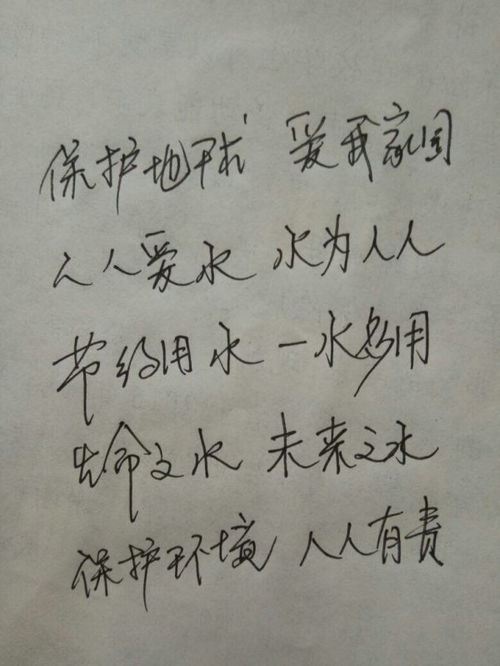 保护地球 爱我家园
人人爱水 水为人人
节约用水 一水多用
生命之水 未来之水
保护环境 人人有责